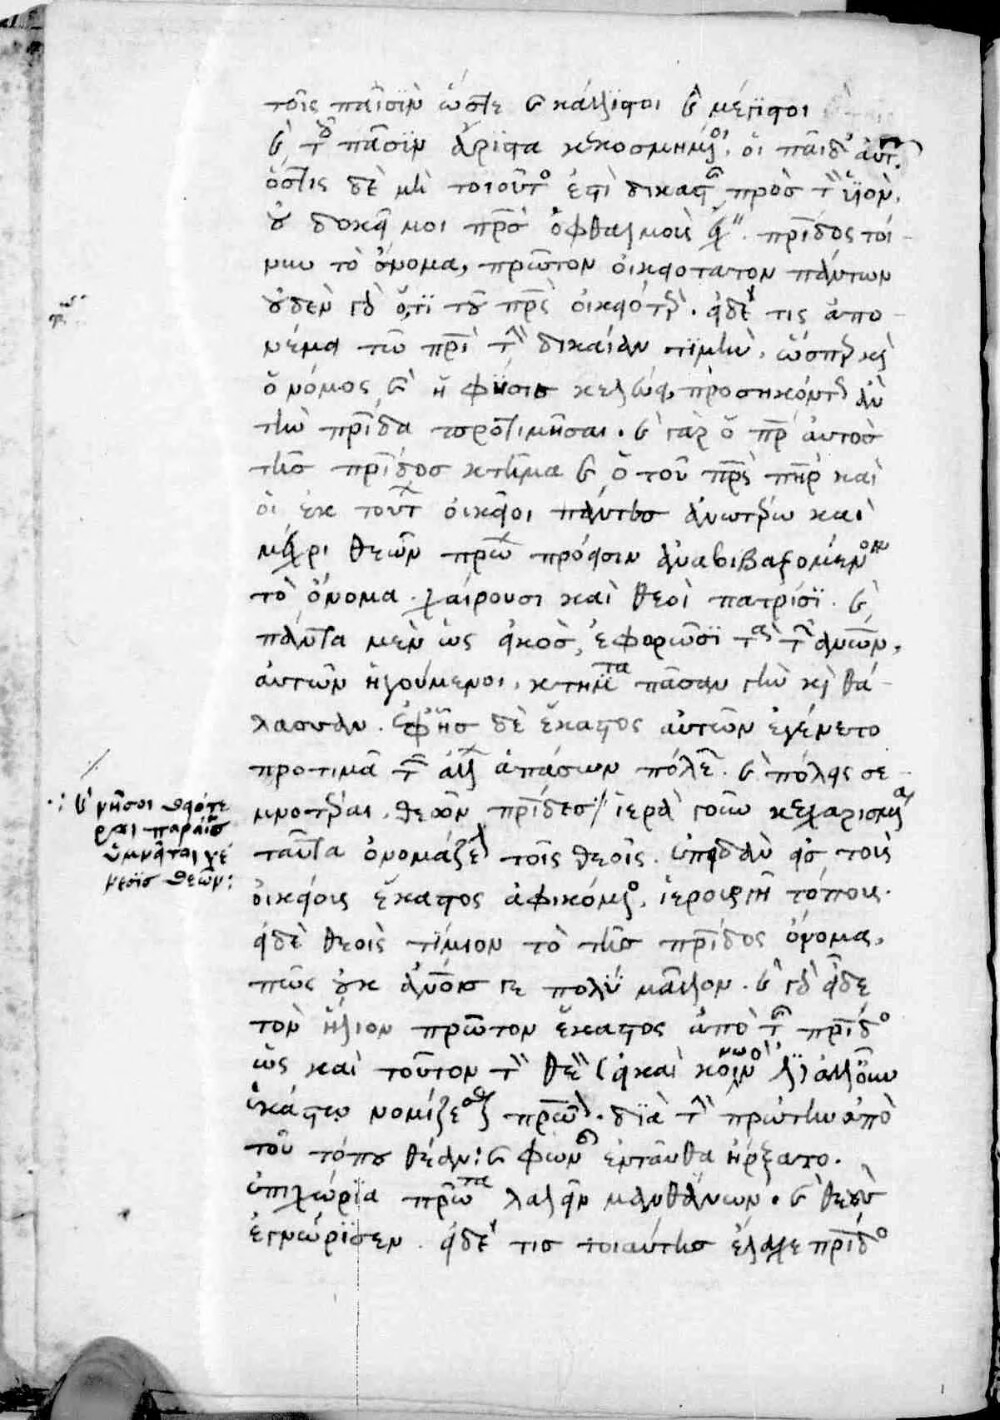 τοῖς παῖσιν ὥστε καὶ κάλλιστοι καὶ μέγιστοι
καὶ τοῖς πᾶσιν ἄριστα κεκοσμημένοι, οἱ παῖδες αὐτῶν.
ὅστις δὲ μὴ τοιοῦτος ἐστὶ δικαστὴς πρὸς τὸν υἱὸν,
οὐ δοκεῖ μοι πατρὸς ὀφθαλμοὺς ἔχειν. πατρίδος τοί-
νυν τὸ ὄνομα, πρῶτον οἰκειότατον πάντων
οὐδὲν γὰρ ὅ, τι τοῦ πατρὸς οἰκειότερον. εἰ δέ τις ἀπο-
νέμει τῶ πατρὶ τὴν δικαίαν τιμὴν, ὥσπερ καὶ
ὁ νόμος καὶ ἡ φύσις κελεύει, προσηκόντως ἂν
τὴν πατρίδα προτιμῆσαι. καὶ γὰρ ὁ πατὴρ αὐτὸς
τῆς πατρίδος κτῆμα καὶ ὁ τοῦ πατρὸς πατὴρ καὶ
οἱ ἐκ τούτων οἰκεῖοι πάντες ἀνωτέρω καὶ
μέχρι θεῶν πατρώων πρόεισιν ἀναβιβαζόμενον
τὸ ὄνομα. χαίρουσι καὶ θεοὶ πατρίσι. καὶ
πάντα μὲν ὡς εἰκὸς, ἐφορῶσι τὰ τῶν ἀνθρώπων,
αὐτῶν ἡγούμενοι, κτήματα πᾶσαν γῆν καὶ θά-
λασσαν. ἐφ' ἧς δὲ ἕκαστος αὐτῶν ἐγένετο
προτιμᾶ τῶν ἄλλων ἁπασῶν πόλεων. καὶ πόλεις σε-
μνότεραι, θεῶν πατρίδες / ἱερὰ γοῦν κεχαρισμένα
ταῦτα ὀνομάζεται τοῖς θεοῖς. ἐπειδὰν εἰς τοὺς
οἰκείους ἕκαστος ἀφικόμενος, ἱερουργῆ τόπους.
εἰ δὲ θεοῖς τίμιον τὸ τῆς πατρίδος ὄνομα,
πῶς οὐκ ἀνθρώποις γε πολὺ μᾶλλον. καὶ γὰρ εἶδε
τὸν ἥλιον πρῶτον ἕκαστος ἀπὸ τῆς πατρίδος
ὡς καὶ τοῦτον τὸν θεὸν (εἰ καὶ κοινός ἐστιν) ἀλλ' οὖν
ἑκάστω νομίζεσθαι πατρῶον. διὰ τὴν πρώτην ἀπὸ
τοῦ τόπου θέαν: καὶ φωνῆς ἐνταῦθα ἤρξατο.
ἐπιχώρια πρῶτα λαλεῖν μανθάνων. καὶ θεοὺς
ἐγνώρισεν. εἰ δέ τις τοιαύτης ἔλαχε πατρίδος
·: καὶ νῆσοι θειότε
ραι παρ' αἷς
ὑμνεῖται γέ
νεσις θεῶν: